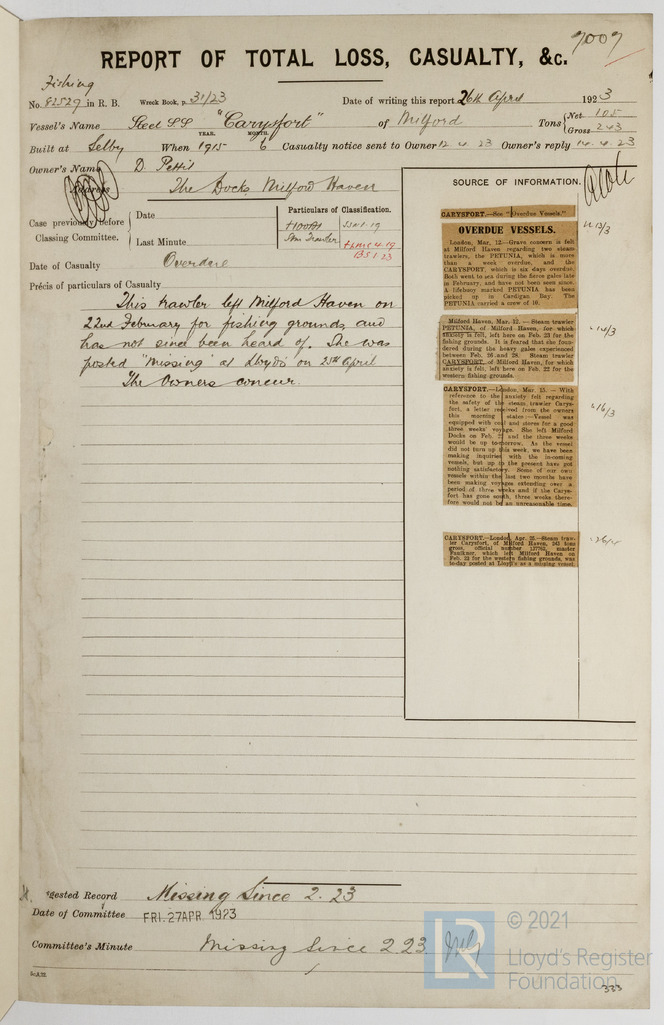 7007
REPORT OF TOTAL LOSS, CASUALTY, &c.
Fishing
No. 82527 in R. B. Wreck Book, p. 31/23 Date of writing this report 26th April 1923
Vessel's Name Steel SS "Carysfort" of Milford Tons { Net 105
Gross 243
YEAR. MONTH.
Built at Selby When 1915 6 Casualty notice sent to Owner 12.4.23 Owner's reply 14.4.23
Owner's Name D. Pettit
Address The Docks, Milford Haven
Case previously before Classing Committee. { Date
Last Minute
Particulars of Classification.
+100A1
Stm Trawler
Date of Casualty Overdue
Précis of particulars of Casualty
This trawler left Milford Haven on
22nd February for fishing grounds and
has not since been heard of. She was
posted "Missing" at Lloyds on 25th April
The Owners concur.
SOURCE OF INFORMATION.
CARYSFORT.—See "Overdue Vessels."
OVERDUE VESSELS.
London, Mar. 12.—Grave concern is felt
at Milford Haven regarding two steam
trawlers, the PETUNIA, which is more
than a week overdue, and the
CARYSFORT, which is six days overdue.
Both went to sea during the fierce gales late
in February, and have not been seen since.
A lifebuoy marked PETUNIA has been
picked up in Cardigan Bay. The
PETUNIA carried a crew of 10.
13/3
Milford Haven, Mar. 12.—Steam trawler
PETUNIA, of Milford Haven, for which
anxiety is felt, left here on Feb. 23 for the
fishing grounds. It is feared that she foun-
dered during the heavy gales experienced
between Feb. 26 and 28. Steam trawler
CARYSFORT, of Milford Haven, for which
anxiety is felt, left here on Feb. 22 for the
western fishing grounds.
14/3
CARYSFORT.—London, Mar. 15.—With
reference to the anxiety felt regarding
the safety of the steam trawler Carys-
fort, a letter received from the owners
this morning states:—Vessel was
equipped with coal and stores for a good
three weeks' voyage. She left Milford
Docks on Feb. 22 and the three weeks
would be up to-morrow. As the vessel
did not turn up this week, we have been
making inquiries with the in-coming
vessels, but up to the present have got
nothing satisfactory. Some of our own
vessels within the last two months have
been making voyages extending over a
period of three weeks and if the Carys-
fort has gone south, three weeks there-
fore would not be an unreasonable time.
16/3
CARYSFORT.—London, Apr. 25.—Steam traw-
ler Carysfort, of Milford Haven, 243 tons
gross, official number 137762, master
Faulkner, which left Milford Haven on
Feb. 22 for the western fishing grounds, was
to-day posted at Lloyd's as a missing vessel.
26/4
Suggested Record Missing Since 2.23
Date of Committee FRI. 27 APR 1923
Committee's Minute Missing Since 2.23
LR © 2021
Lloyd's Register
Foundation
333